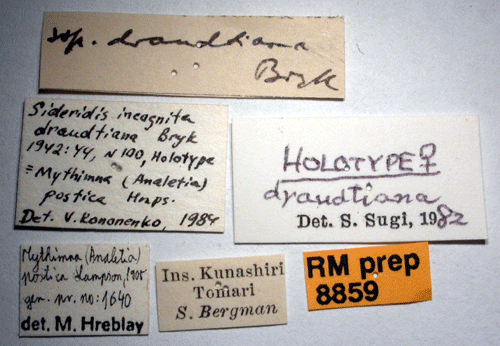 ssp. draudtiana
Bryk
Sideridis incognita
draudtiana Bryk
1942:44, N 100, Holotype
= Mythimna (Analetia)
postica Hmps.
Det. V. Kononenko, 1984
HOLOTYPE ♀
draudtiana
Det. S. Sugi, 1982
Mythimna (Analetia)
postica Hampson, 1905
gen. pr. no: 1640
det. M. Hreblay
Ins. Kunashiri
Tomari
S. Bergman
RM prep
8859